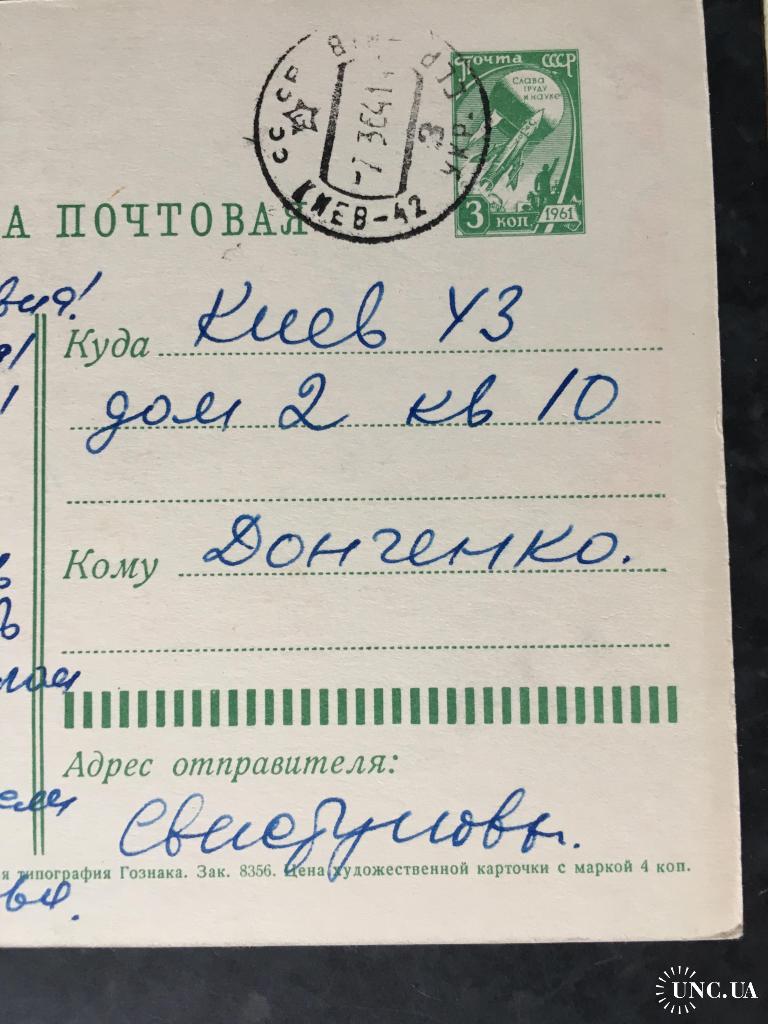 ПОЧТА СССР
СЛАВА
ТРУДУ
И НАУКЕ
3 КОП 1961
СССР
УКР.
КИЕВ-42
-7 3 64 14
А ПОЧТОВАЯ
Куда Киев 43
дом 2 кв 10
Кому Донченко.
Адрес отправителя:
Свистуновы.
я типография Гознака. Зак. 8356. Цена художественной карточки с маркой 4 коп.
UNC.UA